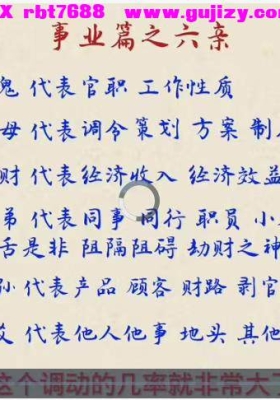 X rbt7688 www.gujizy.com
事业篇之六亲
鬼 代表官职 工作性质
母 代表调令策划 方案 制
财 代表经济收入 经济效益
弟 代表同事 同行 职员 小
舌是非 阻隔阻碍 劫财之神
孙 代表产品 顾客 财路 剥官
代表他人他事 地头 其他
这个调动的几率就非常大了